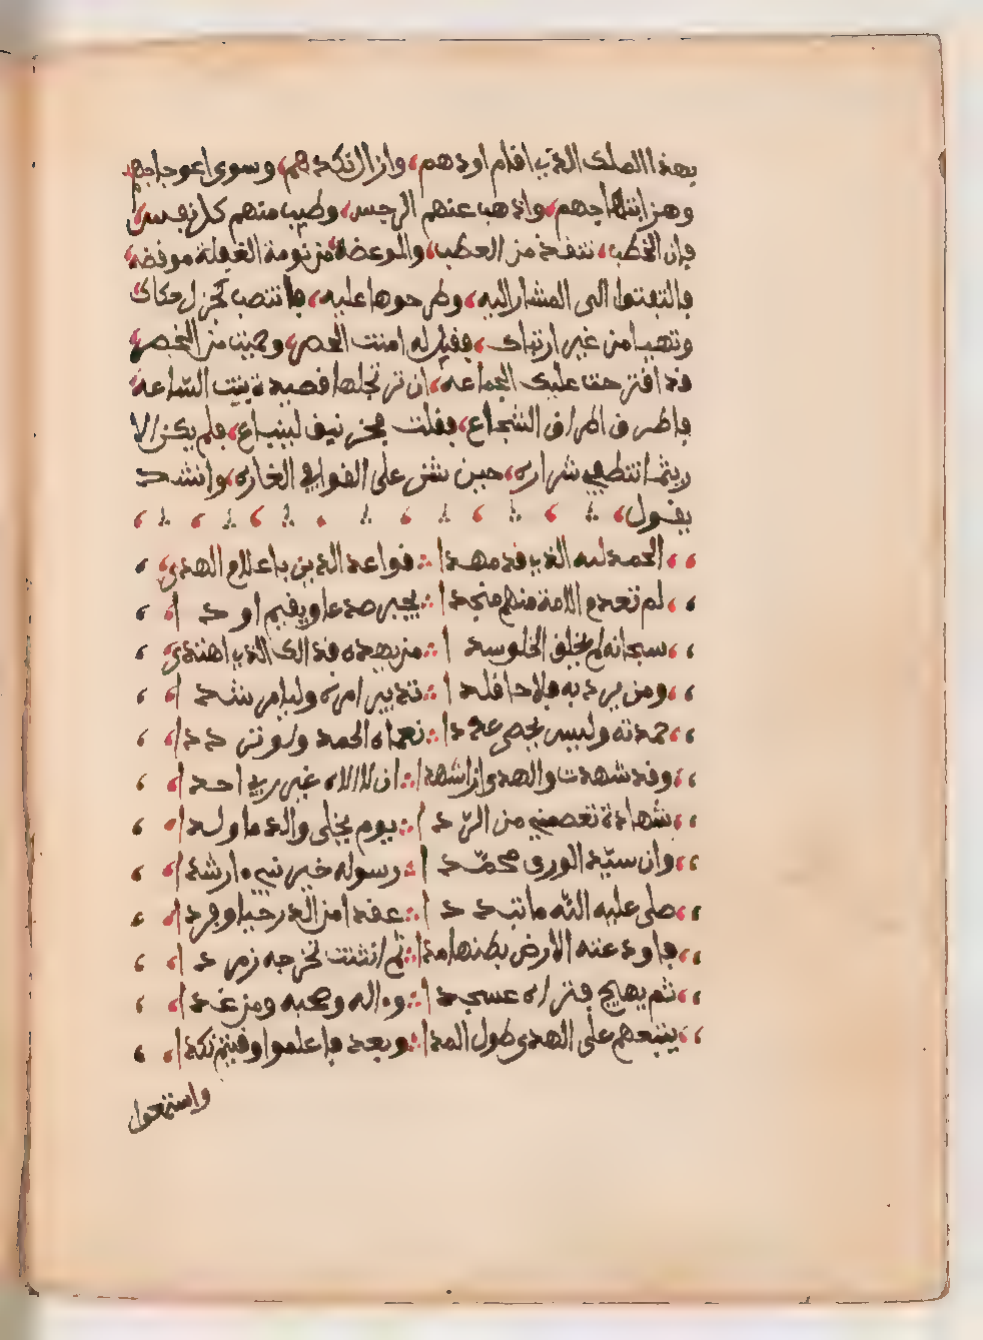 بهذا الملك الذي اقام اودهم، وازال نكدهم، وسوى اعوجاجهم،
وهز ابتهاجهم، واذهب عنهم الرجس، وطيب منهم كل نفس،
فان الخطب، تنقذ من العطب، والموعظة، من نومة الغفلة موقضة،
فالتفتوا الى المشار اليه، وطرحوها عليه، فانتصب
وتهيا من غير ارتباك، فقيل له امنت الحصر، وحميت من الخصر،
قد اقترحت عليك الجماعه، ان ترتجلها قصيدة بنت الساعه،
فاطرق اطراق الشجاع، فقلت مخرنبق لينباع، فلم يكن الا
ريثما شراره، حين شن على القوافي الغاره، وانشد
يقول،
الحمد لله الذي قد مهدا ∴ قواعد الدين باعلام الهدى
لم تعدم الامة منهم منجدا ∴ يجبر صدعا ويقيم اودا
سبحانه لم يخلق الخلق سدا ∴ من يهده فذالك الذي اهتدى
ومن يرد به فلاحا قلدا ∴ تدبير امره وليا مرشدا
حمدته وليس يحصي عددا ∴ نعماه الحمد ولو تردددا
وقد شهدت والهدى ان اشهدا ∴ ان لا الاه غير ربي احدا
شهادة تعصمني من الردا ∴ يوم يخلي والد ما ولدا
وان سيد الورى محمدا ∴ رسوله خير نبي ارشدا
صلى عليه الله ما تبددا ∴ عقدا من الدر حيا وفردا
فاودعته الارض بطنها مدا ∴ ثم انثنت تخرجه زمردا
ثم يهيج فتراه عسجدا ∴ وءاله وصحبه ومن غدا
يتبعهم على الهدى طول المدا ∴ وبعد فاعلموا وقيتم نكدا
واستمعوا